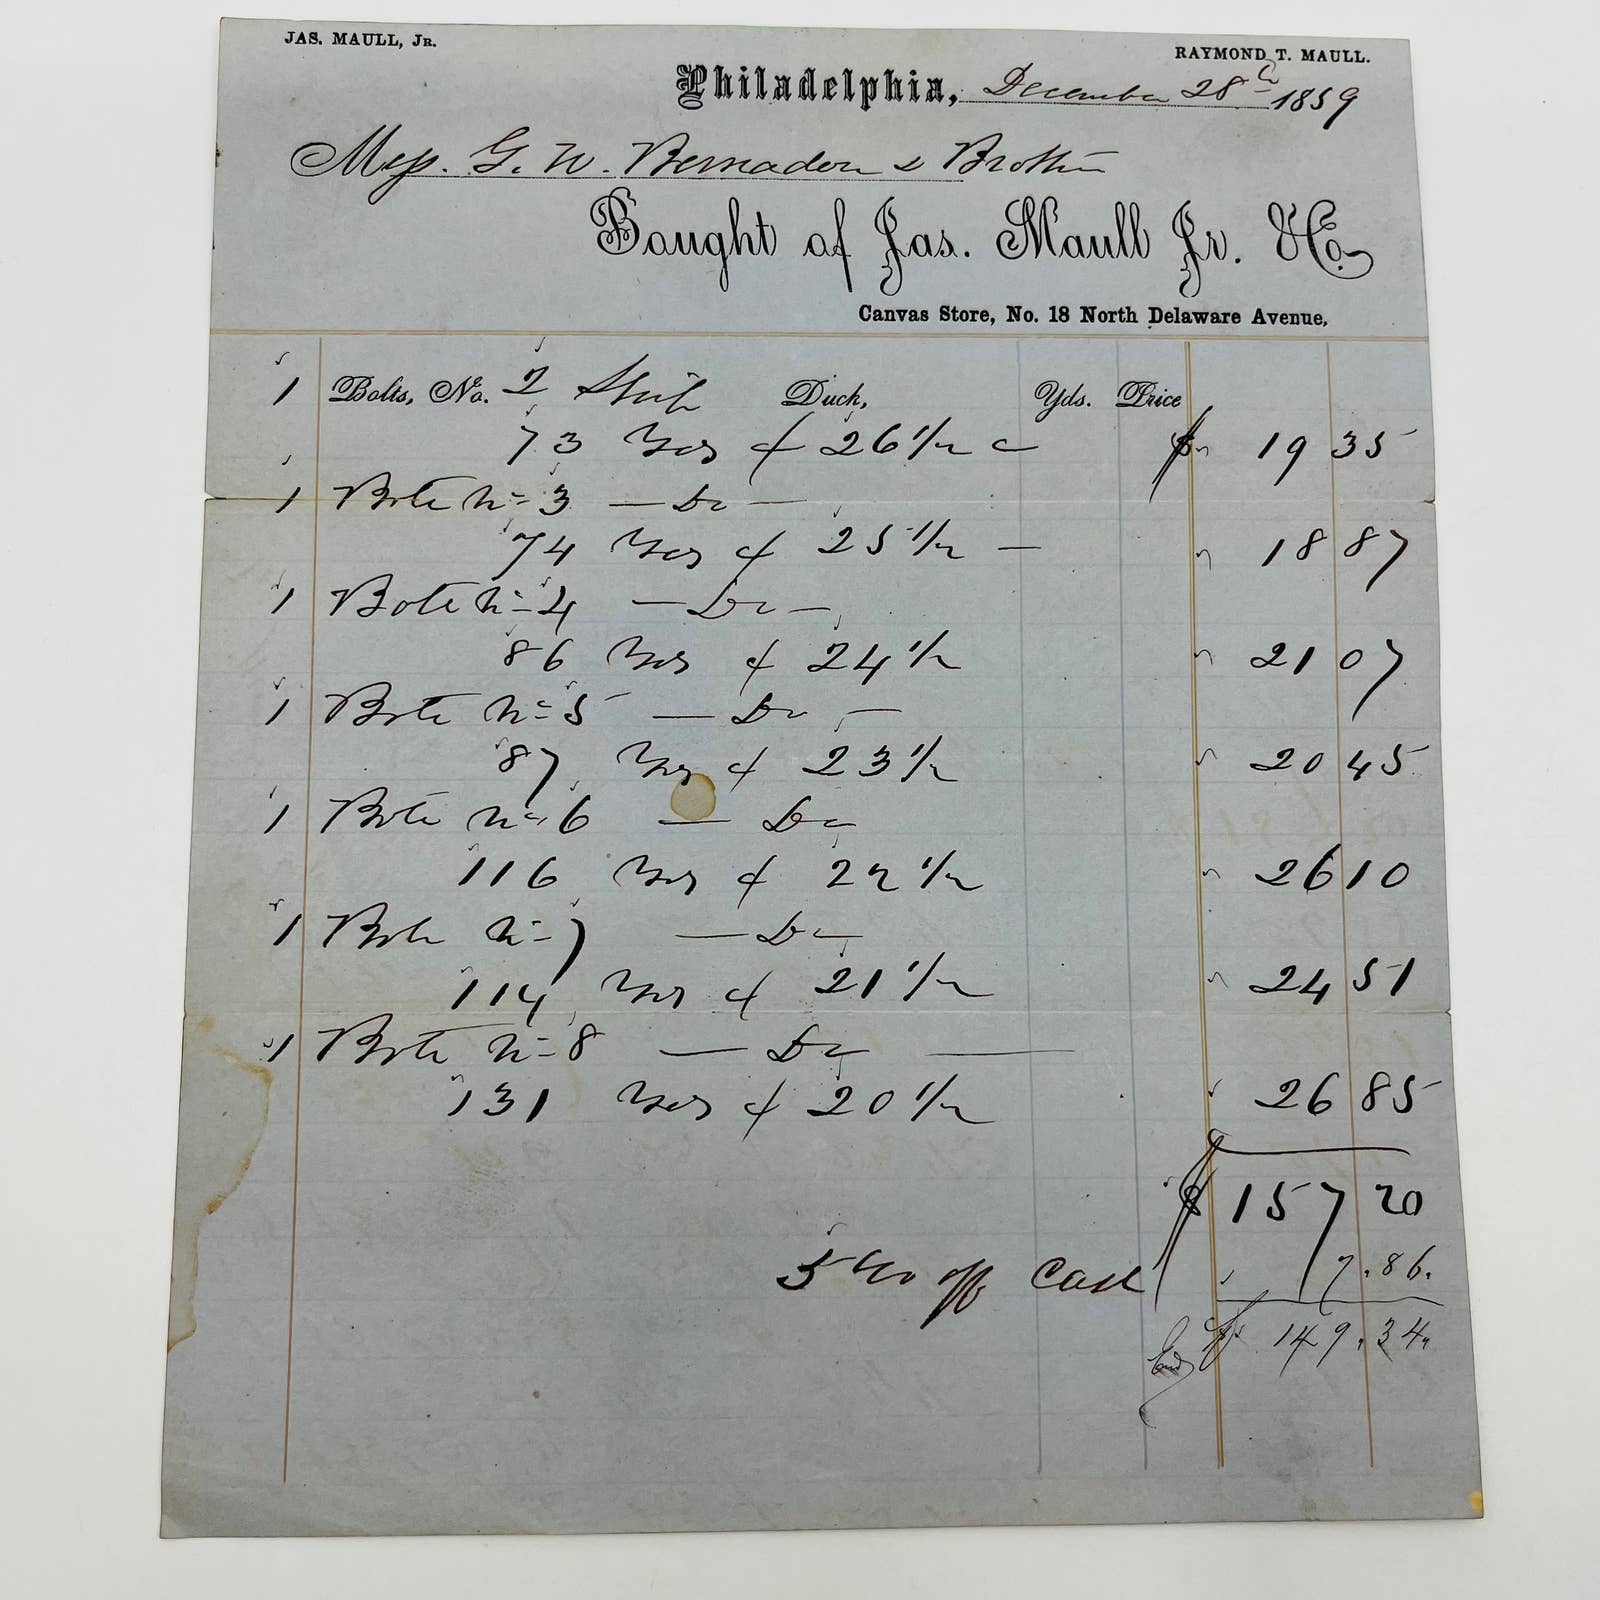 JAS. MAULL, JR.
RAYMOND T. MAULL.
Philadelphia, December 28th 1859
Mess. G. W. Bernadou & Brother
Bought of Jas. Maull Jr. & Co.
Canvas Store, No. 18 North Delaware Avenue,
1 Bolts, No. 2 Ship Duck, Yds. Price
73 Yds @ 26 1/2 c $ 19 35
1 Bolt No 3 — Do —
74 Yds @ 25 1/2 — " 18 87
1 Bolt No 4 — Do —
86 Yds @ 24 1/2 " 21 07
1 Bolt No 5 — Do —
87 Yds @ 23 1/2 " 20 45
1 Bolt No 6 — Do
116 Yds @ 22 1/2 " 26 10
1 Bolt No 7 — Do —
114 Yds @ 21 1/2 " 24 51
1 Bolt No 8 — Do —
131 Yds @ 20 1/2 " 26 85
$ 157 20
5 % off Cash 7.86.
$ 149.34.